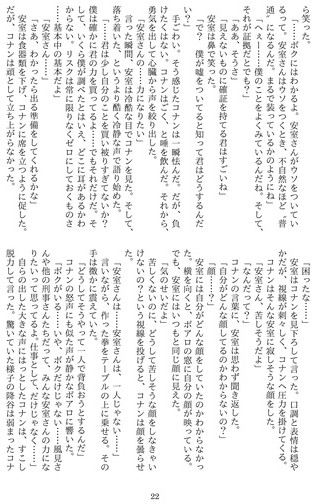 ら笑った。
「ボクにはわかるよ。安室さんがウソをついているって。安室さんはウソをつくとき、不自然なほど〝普通〟になるんだ。まるで装っているかのようにね」
「へぇーー僕のことをよくみているんだね。そして、それが証拠だとでも?」
「ああ、そうさ」
「見えないものに確証を持てる君はすごいね」
安室は鼻で笑った。
「で? 僕が嘘をついてると知って君はどうするんだい」
手ごわい。そう感じたコナンは一瞬怯んだ。だが、負けたくはない。コナンはごく、と唾を飲んだ。それから、勇気を出して心臓から声を絞り出した。
「安室さんの……力になりたい」
言った瞬間、安室は冷酷な目でコナンを見た。そして、落ち着いた、というより酷く冷静な声で語り始めた。
「……君は少し自分のことを買い被りすぎてないか? 僕は確かに君の力を買ってるよ……でもそれだけだ。そして、いくら僕が調べたとはいえ、どこに耳があるかわからない。リスクは常に限りなくゼロにしておくものさ――基本中の基本だよ」
「安室さん……」
「さあ、わかったら出る準備をしてくれるかな」
安室は食器類を下げ、コナンに席を立つように促した。だが、コナンは頑として立ち上がらなかった。
「困ったな……」
安室はコナンを見下ろして言った。口調と表情は穏やかだが、視線が鋭く刺々しく、コナンへ圧力を掛けてくる。
コナンはそんな安室に寂しそうな顔をした。
「安室さん、苦しそうだよ」
「なんだって?」
コナンの言葉に、安室は思わず聞き返した。
「自分がどんな顔してるのかわからないの?」
「顔……?」
安室には自分がどんな顔をしていたのかわからなかった。横を向くと、ポアロの窓に自分が映っている。安室にはいつもと同じ顔に見えた。
「気のせいだよ」
苦しくないのに、どうして苦しそうな顔をしなきゃいけないのという視線を投げると、コナンは顔を曇らせた。
「安室さんは……安室さんは、一人じゃない……」
言いながら、作った拳をテーブルの上に乗せる。その手は微かに震えていた。
「どうしてそうやって一人で背負おうとするんだ」
コナンの怒声にも似た声が静かなポアロに響いた。
「ボクがいる……いや、ボクだけじゃない……風見さんや他の刑事さんたちだって、みんな安室さんの力になりたいって思ってるよ。仕事として、だけじゃなく……」
自らの出した大きな声にはっとしたコナンは、すこし脱力して言った。驚いていた様子の降谷は弱まったコナ
22